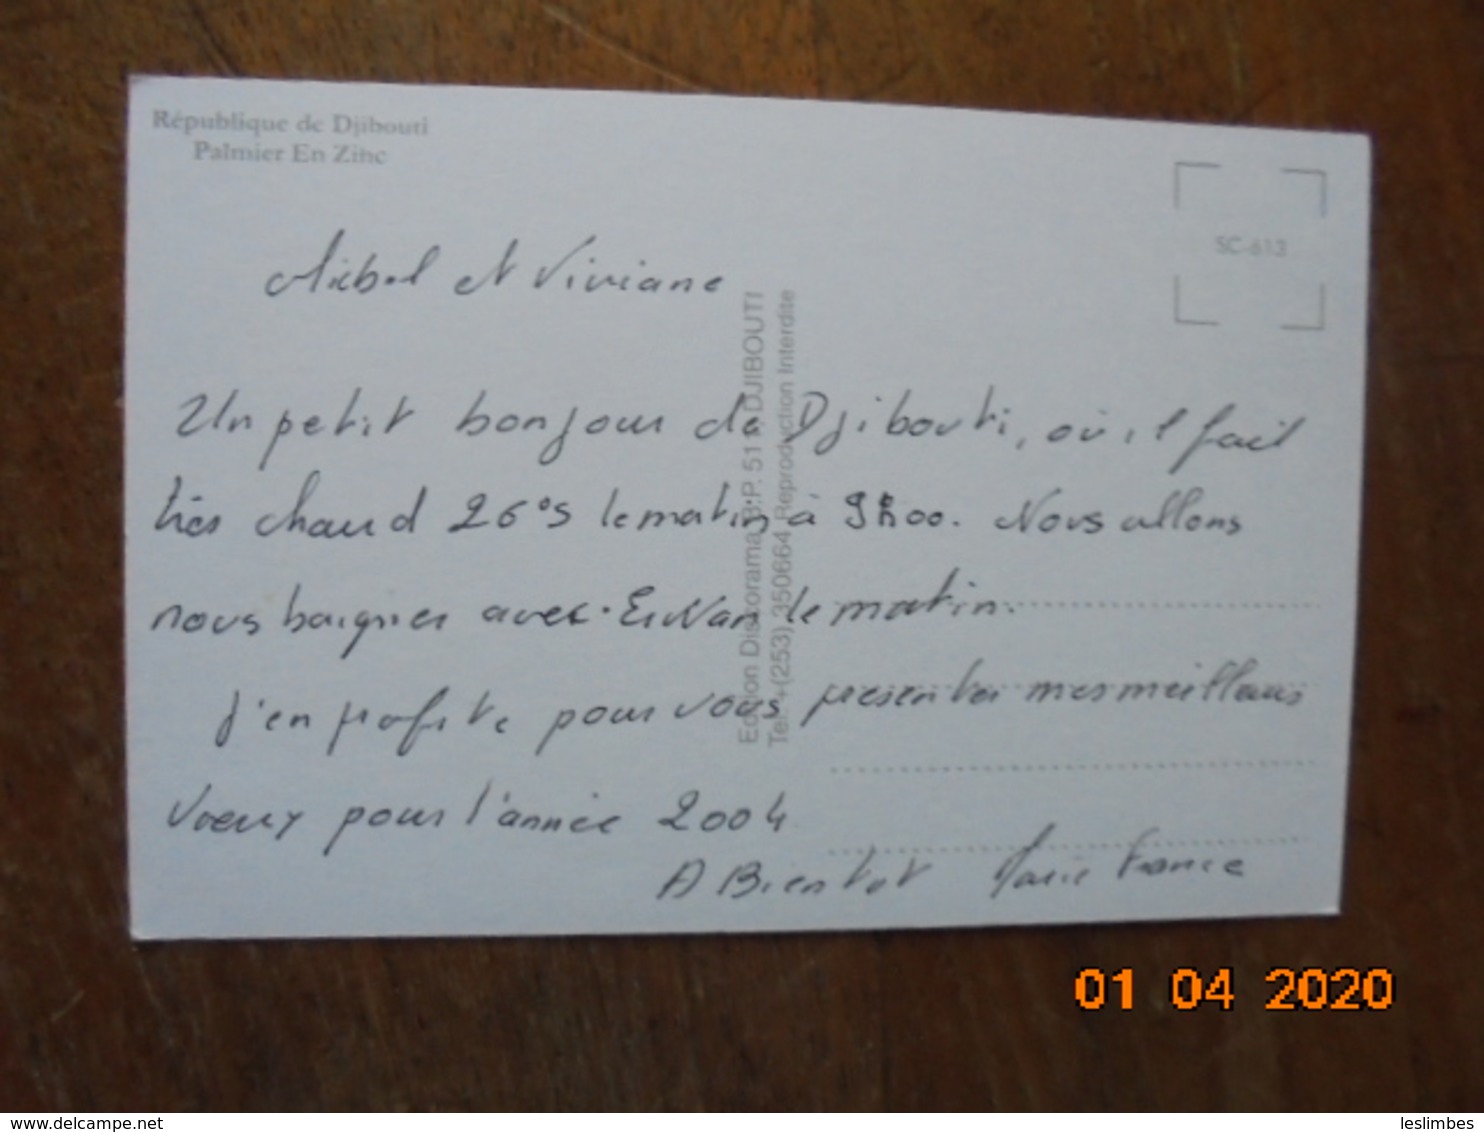 République de Djibouti
Palmier En Zinc
SC-613
Michel et Viviane
Un petit bonjour de Djibouti, où il fait
très chaud 26°5 le matin à 9h00. Nous allons
nous baigner avec Erwan le matin.
J'en profite pour vous presenter mes meilleurs
Voeux pour l'année 2004
A Bientot Marie France
Edition Discorama B.P. 511 DJIBOUTI
Tel. +(253) 350664 Reproduction Interdite
01 04 2020
https://www.delcampe.net
leslimbes